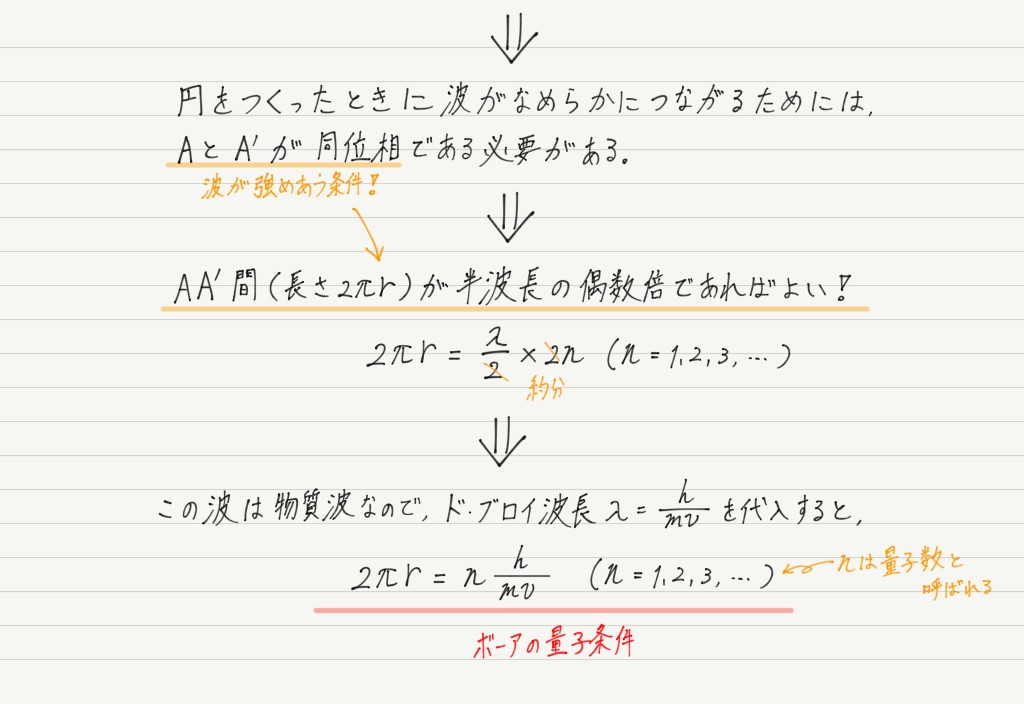 ⇓
円をつくったときに波がなめらかにつながるためには,
AとA′が同位相である必要がある。
波が強めあう条件!
⇓
AA′間(長さ2πr)が半波長の偶数倍であればよい!
2πr = λ/2 × 2n (n = 1, 2, 3, …)
約分
⇓
この波は物質波なので, ド・ブロイ波長 λ = h/mv を代入すると,
2πr = n h/mv (n = 1, 2, 3, …)
nは量子数と
呼ばれる
ボーアの量子条件